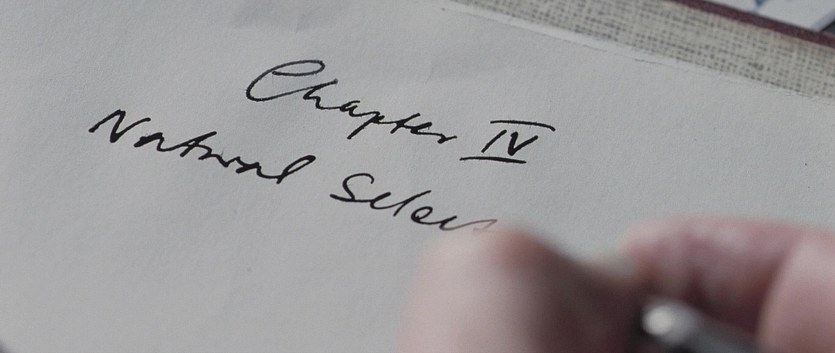 Chapter IV
Natural Selec